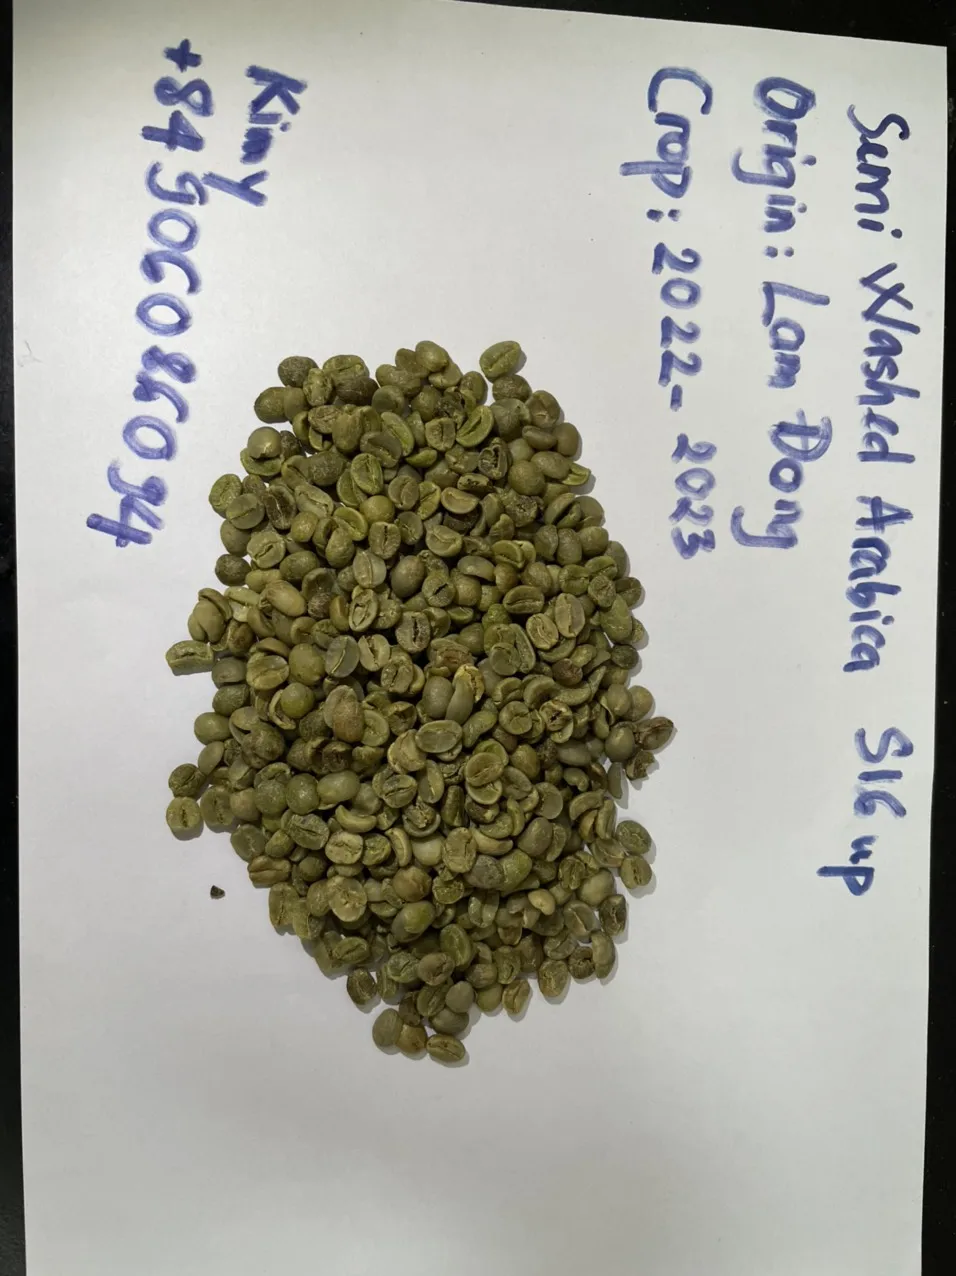 Semi Washed Arabica S16 up
Origin: Lam Đong
Crop: 2022-2023
Kimy
+84906086094